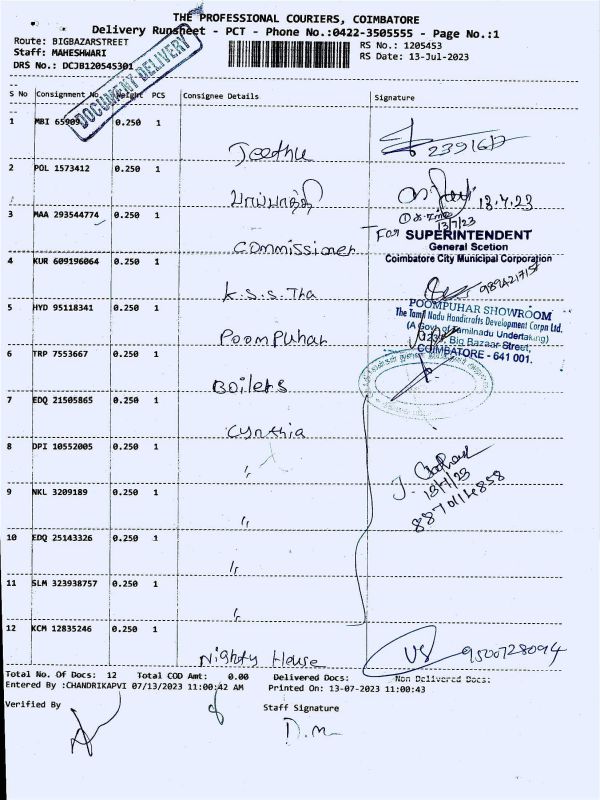 THE PROFESSIONAL COURIERS, COIMBATORE
Delivery Runsheet - PCT - Phone No.:0422-3505555 - Page No.:1
Route: BIGBAZARSTREET
Staff: MAHESHWARI
DRS No.: DCJB120545301
RS No.: 1205453
RS Date: 13-Jul-2023
DOCUMENT DELIVERY
S No Consignment No. Weight PCS Consignee Details Signature
1 MBI 0.250 1 Jeethu 239167
2 POL 1573412 0.250 1 13.7.23
13/7/23
3 MAA 293544774 0.250 1 Commissioner
For SUPERINTENDENT
General Scetion
Coimbatore City Municipal Corporation
4 KUR 609196064 0.250 1 K.S.S. Tha
5 HYD 95118341 0.250 1 Poompuhar
POOMPUHAR SHOWROOM
The Tamil Nadu Handicrafts Development Corpn Ltd.
(A Govt. of Tamilnadu Undertaking)
Big Bazaar Street,
COIMBATORE - 641 001.
6 TRP 7553667 0.250 1 Boilers
7 EDQ 21505865 0.250 1 Cynthia
8 DPI 10552015 0.250 1 "
J.
13/7/23
8870114858
9 NKL 3209189 0.250 1 "
10 EDQ 25143326 0.250 1 "
11 SLM 323938757 0.250 1 "
12 KCM 12835246 0.250 1 Nighty House VS 9500728094
Total No. Of Docs: 12 Total COD Amt: 0.00 Delivered Docs: Non Delivered Docs:
Entered By :CHANDRIKAPVI 07/13/2023 11:00:42 AM Printed On: 13-07-2023 11:00:43
Verified By Staff Signature
D.M